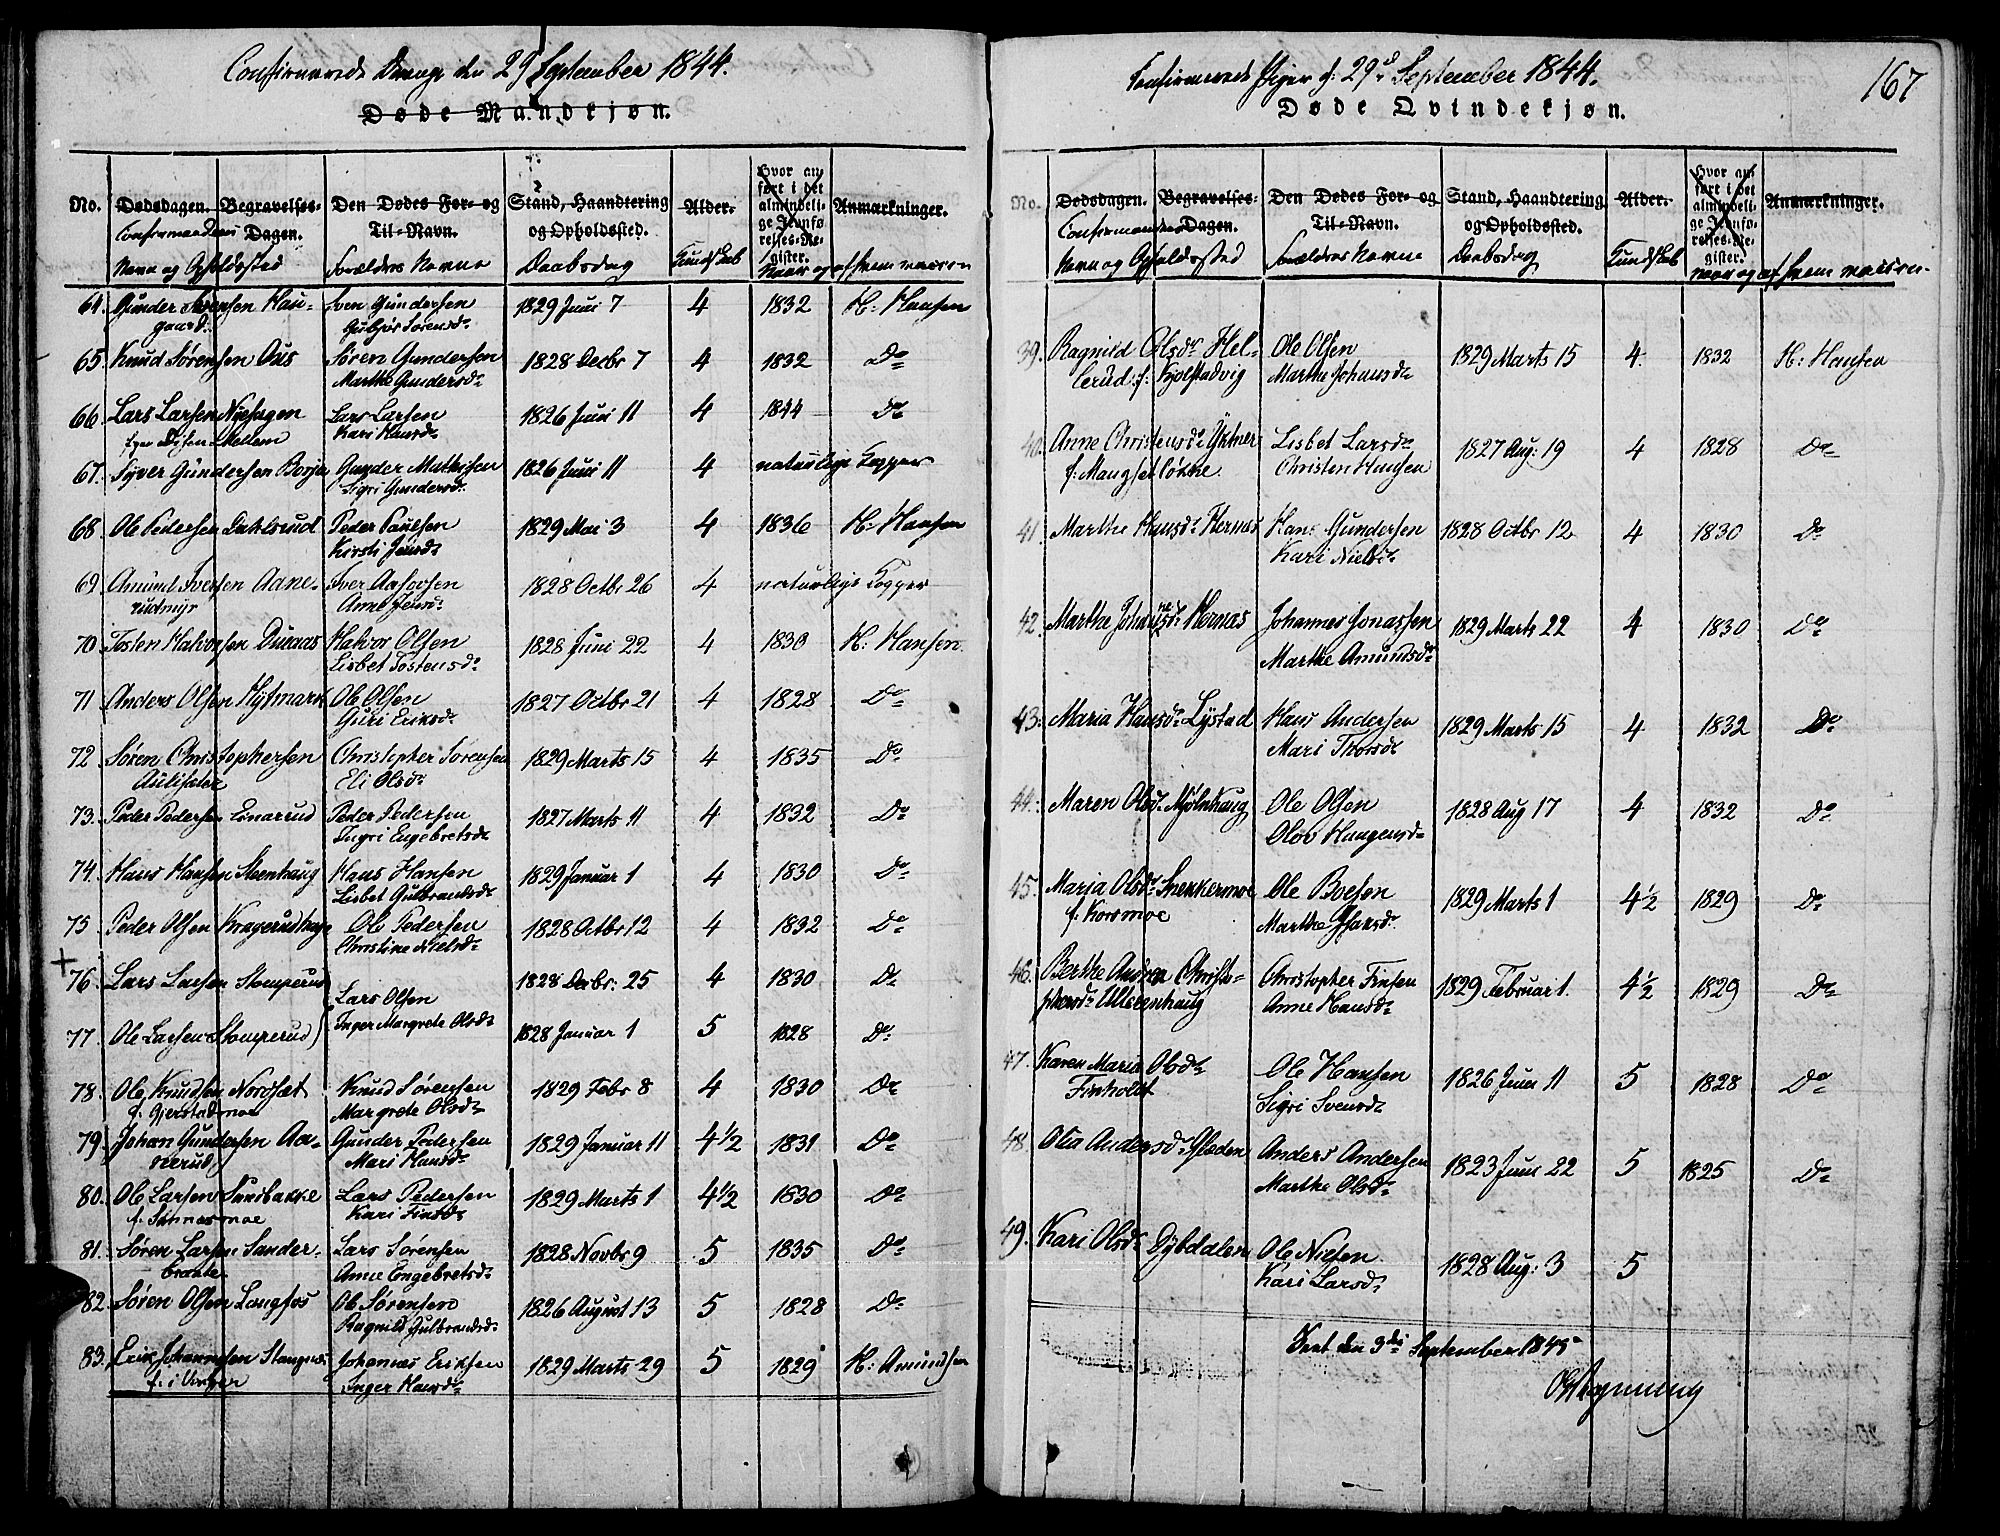 Confirmerede Drenge den 29 September 1844.
Døde Mandkjøn.
No.
Dødsdagen.
Begravelses-Dagen.
Den Dødes For- og Til-Navn.
Stand, Haandtering og Opholdssted.
Alder.
Hvor anført i det almindelige Jevnførelses-Register.
Anmærkninger.
Confirmandens Navn og Opholdssted
Forældres Navne
Daabsdag
Kundskab
Naar og af hvem vaccin
64. Gunder Sørensen Hau- Sven Gundersen 1829 Juni 7 4 1832 H: Hansen
gaard. Gubjør Sørensdr
65. Knud Sørensen Aus Søren Gundersen 1828 Decbr 7 4 1832 Do
Marthe Gundersdr
66. Lars Larsen Nyehagen Lars Larsen 1826 Juni 11 4 1844 Do
Mellem Kari Hansdr
67. Syver Gundersen Borje Gunder Mathisen 1826 Juni 11 4 naturlige Kopper
Sigri Gundersdr
68. Ole Pedersen Dahlsrud Peder Paulsen 1829 Mai 3 4 1836 H: Hansen
Kirsti Jensdr
69. Amund Iversen Aane- Iver 1828 Octbr 26 4 naturlige Kopper
rudmyr Anne Jensdr
70. Tosten Halvorsen Duraas Halvor Olsen 1828 Juni 22 4 1830 H: Hansen.
Lisbet Tostensdr
71. Anders Olsen Hytmark Ole Olsen 1827 Octbr 21 4 1828 Do
Guri Eriksdr
72. Søren Christophersen Christopher Sørensen 1829 Marts 15 4 1835 Do
Aulisæter Eli Olsdr
73. Peder Pedersen Peder Pedersen 1827 Marts 11 4 1832 Do
Ingri Engebretsdr
74. Hans Hansen Steenhaug Hans Hansen 1829 Januar 1 4 1830 Do
Lisbet Gulbrandsdr
75 Peder Olsen Kragerudhage Ole Pedersen 1828 Octbr 12 4 1832 Do
Christine Nielsdr
76. Lars Larsen Stomperud 1828 Decbr: 25 4 1830 Do
Lars Olsen
Inger Margrete Olsdr
77. Ole Larsen Stomperud 1828 Januar 1 5 1828 Do
78. Ole Knudsen Nordsæt Knud Sørensen 1829 Febr 8 4 1830 Do
f. Gjerstadmoe Margrete Olsdr
79. Johan Gundersen Aa- Gunder Pedersen 1829 Januar 11 4½ 1831 Do
nerud Mari Hansdr
80. Ole Larsen Sandbakke Lars Pedersen 1829 Marts 1 4½ 1830 Do
f. Sønnesmoe Kari Finsdr
81. Søren Larsen Sander- Lars Sørensen 1828 Novbr 9 5 1835 Do
braate Anne Engebretsdr
82. Søren Olsen Langfos Ole Sørensen 1826 August 13 5 1828 Do
Ragnild Gulbrandsdr
83. Erik Johannesen Stangnæs Johannes Eriksen 1829 Marts 29 5 1829 H: Amundsen
f. i Vinger Inger Hansdr
Confirmerede Piger d: 29de September 1844.
167
Døde Qvindekjøn.
No.
Dødsdagen.
Begravelses-Dagen.
Den Dødes For- og Til-Navn.
Stand, Haandtering og Opholdssted.
Alder.
Hvor anført i det almindelige Jevnførelses-Register.
Anmærkninger.
Confirmandens Navn og Opholdssted
Forældres Navne
Daabsdag
Kundskab
naar og af hvem vaccin.
39. Ragnild Olsdr Hel- Ole Olsen 1829 Marts 15 4. 1832 H: Hansen
lerud f: Kjolstadvig Marthe Johansdr
40. Anne Christensdr Lisbet Larsdr 1827 Aug: 19 4 1828 Do
f. Mangset løkke Christen Hansen
41 Marthe Hansdr Hernæs Hans Gundersen 1828 Octbr 12 4 1830 Do
Kari Nielsdr
42. Marthe Johannesdr Hernæs Johannes Jonassen 1829 Marts 22 4 1830 Do
Marthe Amundsdr
43. Maria Hansdr Lystad Hans Andersen 1829 Marts 15 4 1832 Do
Mari Thorsdr
44. Maren Olsdr Mølnhaug Ole Olsen 1828 Aug 17 4 1832 Do
Olov Haagensdr
45. Maria Olsdr Snekkermoe Ole Boesen 1829 Marts 1 4½ 1829 Do
f. Korsmoe Marthe
46. Berthe Andrea Christo- Christopher Finsen 1829 Februar 1. 4½ 1829 Do
phersdr Ullerenhaug Anne Hansdr
47. Karen Maria Olsdr Ole Hansen 1826 Juni 11 5 1828 Do
Finholdt Sigri Svensdr
48. Olia Andersdr Glæden Anders Andersen 1823 Juni 22 5 1825 Do
Marthe Olsdr
49. Kari Olsdr Dybdalen Ole Nielsen 1828 Aug: 3 5
Kari Larsdr
den 3die September 1845